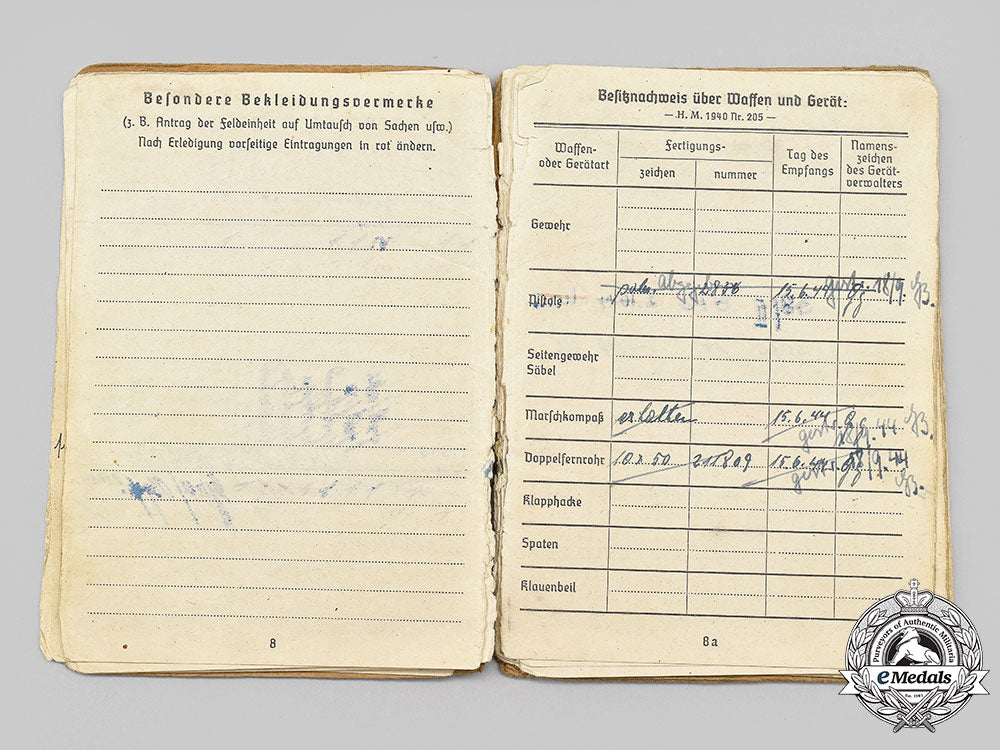 Besondere Bekleidungsvermerke
(z. B. Antrag der Feldeinheit auf Umtausch von Sachen usw.)
Nach Erledigung vorseitige Eintragungen in rot ändern.
8
Besitznachweis über Waffen und Gerät:
— H. M. 1940 Nr. 205 —
Waffen- oder Gerätart
Fertigungs-
zeichen nummer
Tag des Empfangs
Namens- zeichen des Gerät- verwalters
Gewehr
Pistole 15.6.44 18/9.
Seitengewehr
Säbel
Marschkompaß erhalten 15.6.44
Doppelfernrohr 10 x 50 211809 15.6.44
Klapphacke
Spaten
Klauenbeil
8a
Purveyors of Authentic Militaria
eMedals